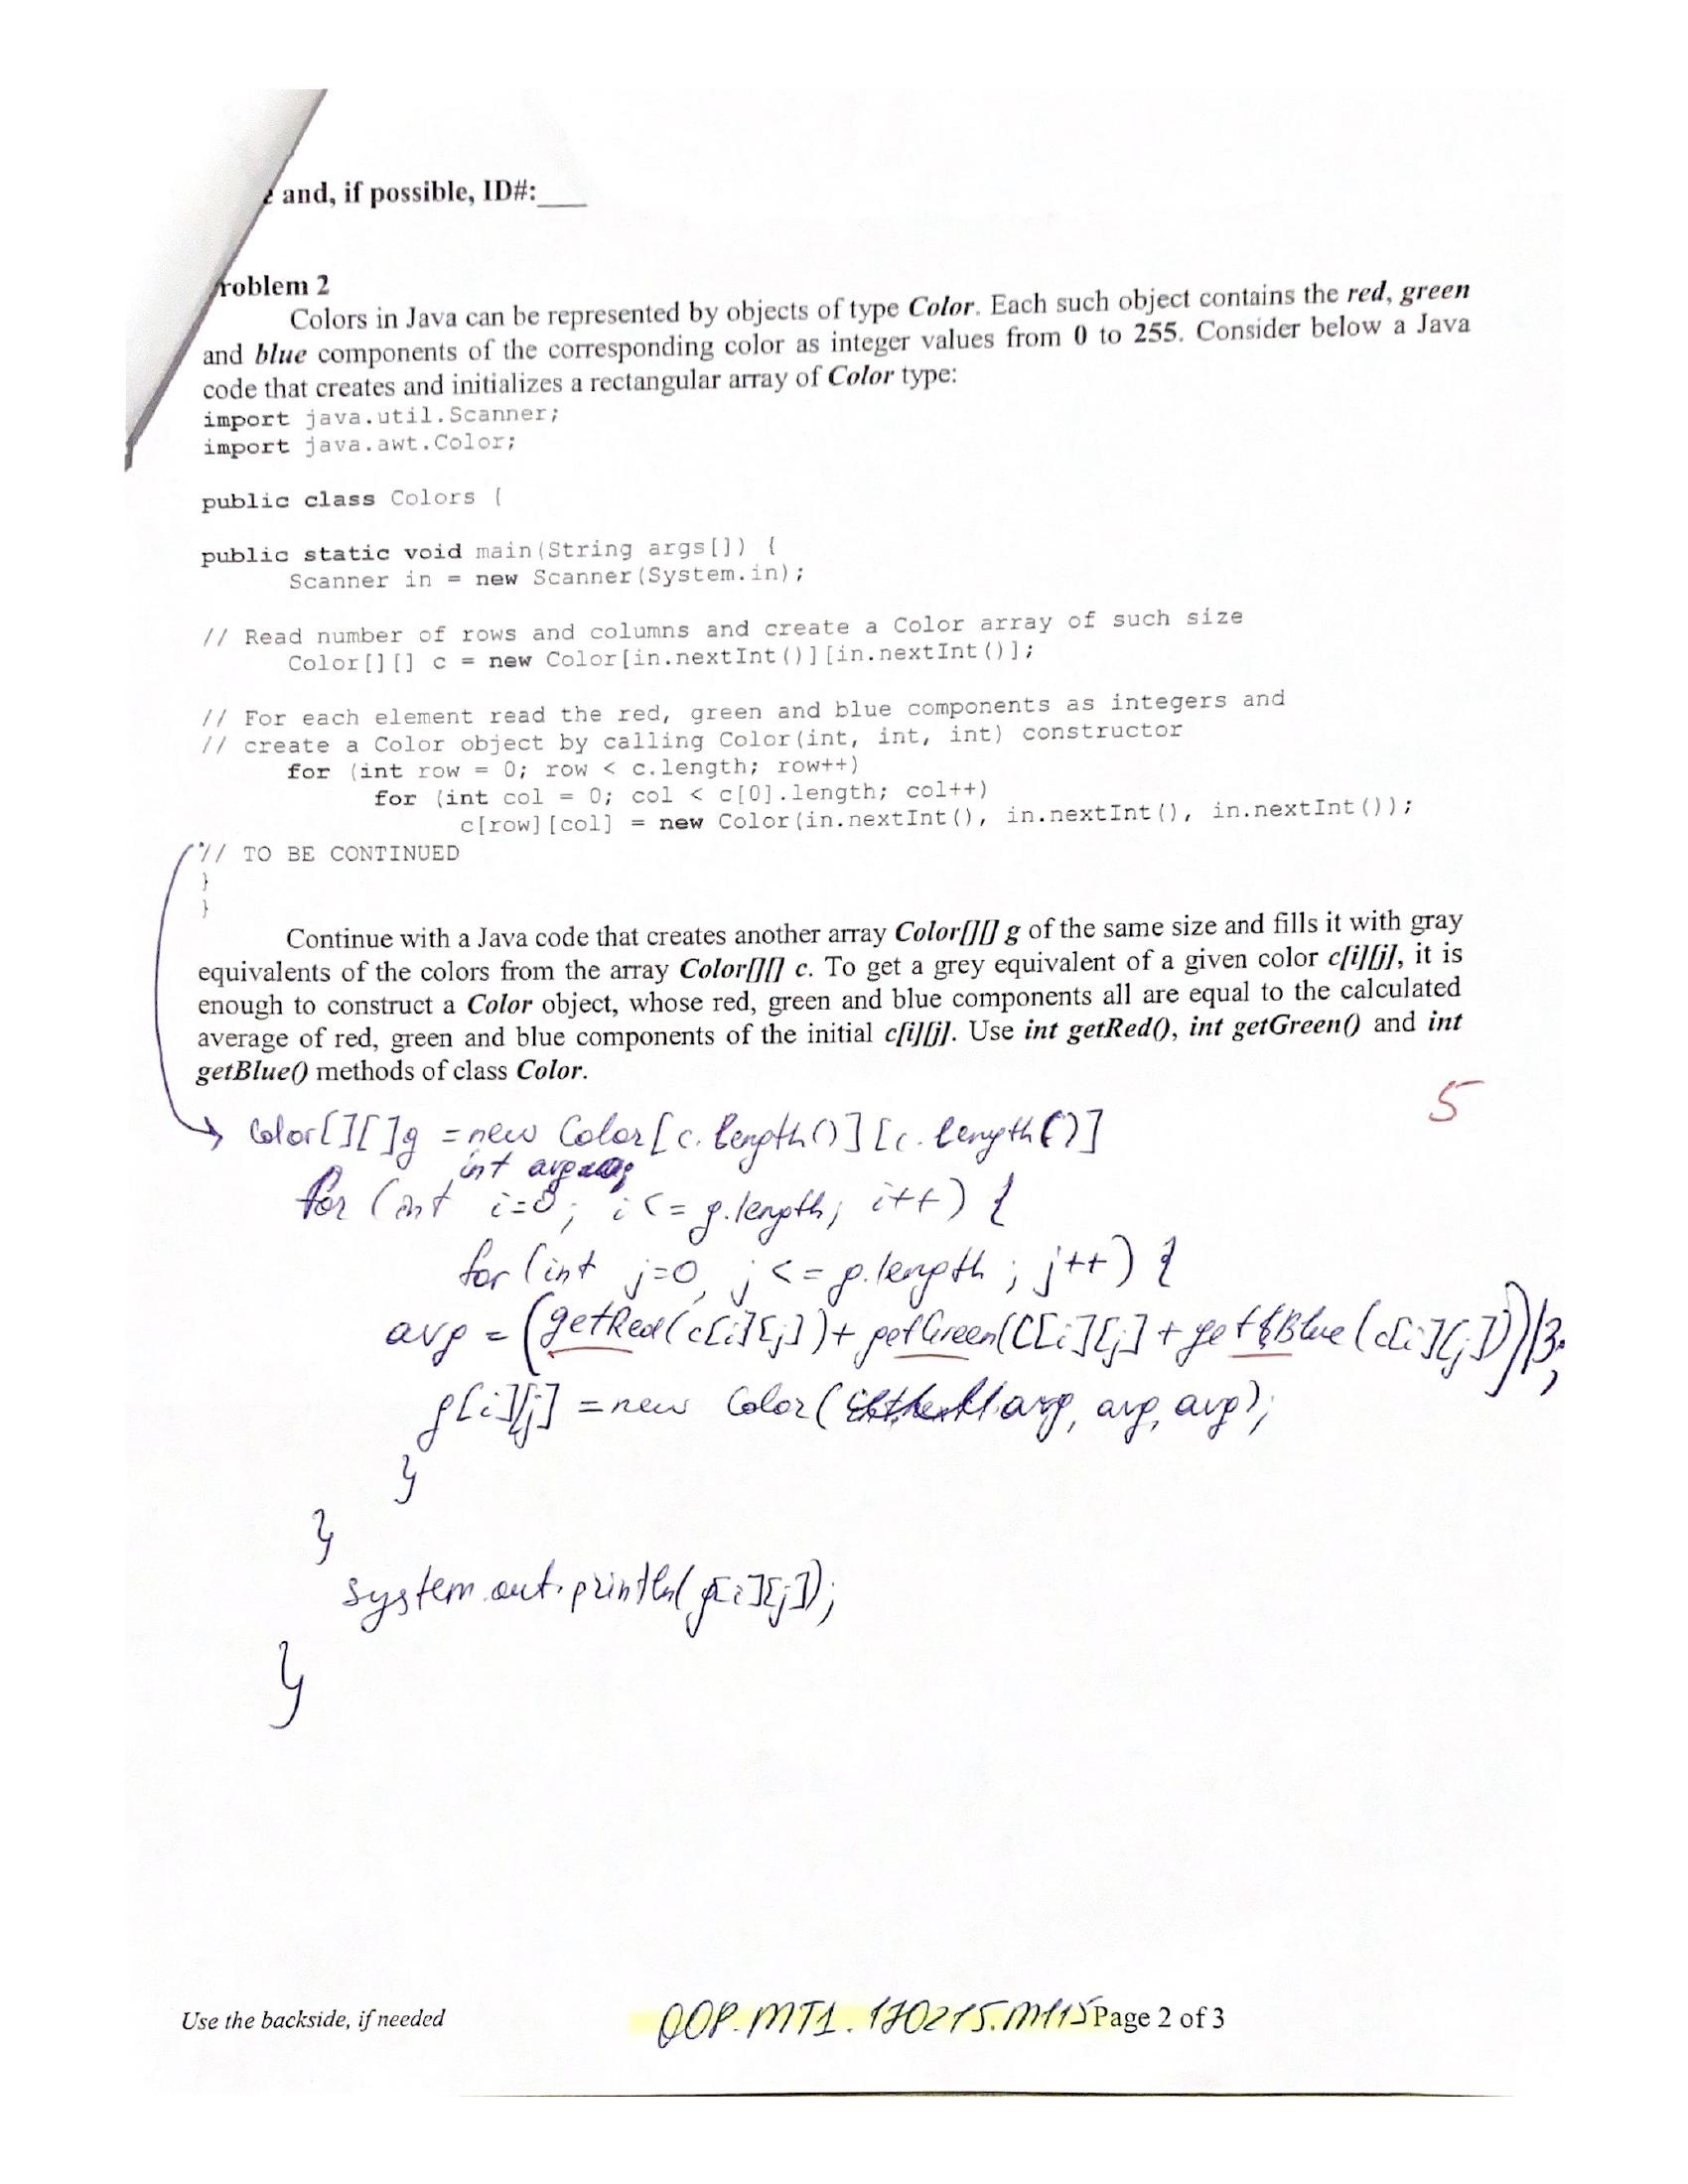 and, if possible, ID#:___
roblem 2
Colors in Java can be represented by objects of type Color. Each such object contains the red, green
and blue components of the corresponding color as integer values from 0 to 255. Consider below a Java
code that creates and initializes a rectangular array of Color type:
import java.util.Scanner;
import java.awt.Color;
public class Colors {
public static void main(String args[]) {
Scanner in = new Scanner(System.in);
// Read number of rows and columns and create a Color array of such size
Color[][] c = new Color[in.nextInt()][in.nextInt()];
// For each element read the red, green and blue components as integers and
// create a Color object by calling Color(int, int, int) constructor
for (int row = 0; row < c.length; row++)
for (int col = 0; col < c[0].length; col++)
c[row][col] = new Color(in.nextInt(), in.nextInt(), in.nextInt());
// TO BE CONTINUED
}
}
Continue with a Java code that creates another array Color[][] g of the same size and fills it with gray
equivalents of the colors from the array Color[][] c. To get a grey equivalent of a given color c[i][j], it is
enough to construct a Color object, whose red, green and blue components all are equal to the calculated
average of red, green and blue components of the initial c[i][j]. Use int getRed(), int getGreen() and int
getBlue() methods of class Color.
5
Color[][]g = new Color[c.length()][c.length()]
int avg
for (int i=0; i<= g.length; i++) {
for (int j=0, j<= g.length ; j++) {
avg = (getRed(c[i][j])+ getGreen(C[i][j]+getBlue(c[i][j]))/3;
g[i][j] = new Color(avg, avg, avg);
}
}
system.out.println(g[i][j]);
}
Use the backside, if needed
OOP.MT1.170215.M115 Page 2 of 3